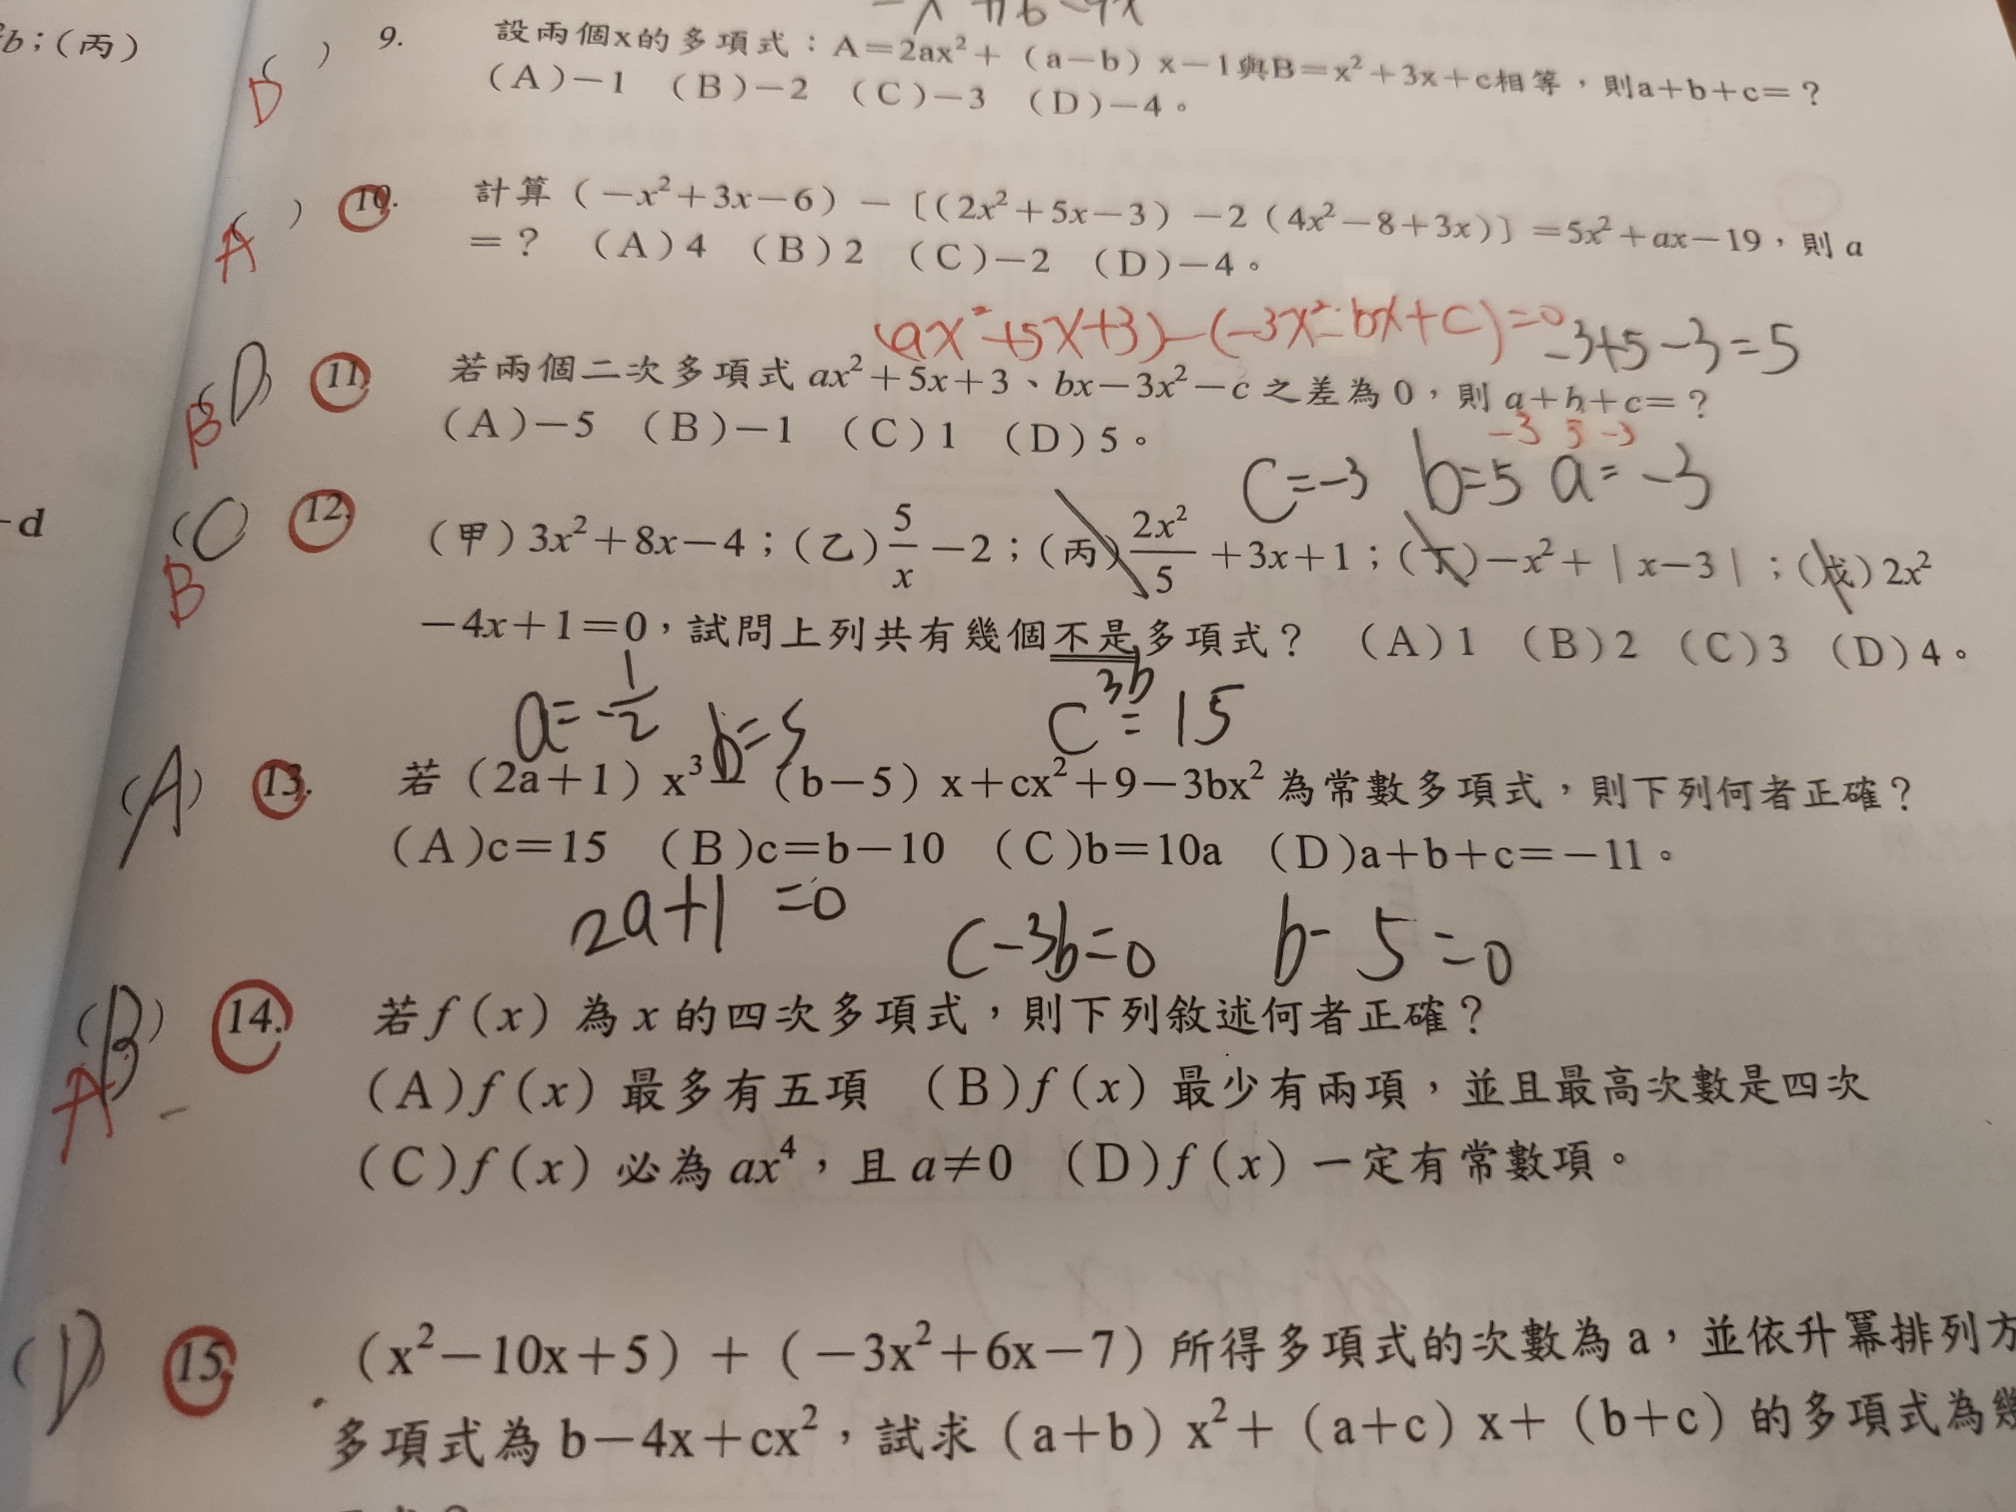 ²b；（丙）
-d
9. 設兩個x的多項式：A＝2ax²＋（a－b）x－1與B＝x²＋3x＋c相等，則a＋b＋c＝？
( )
D
(A)－1 (B)－2 (C)－3 (D)－4。
( ) 10. 計算（－x²＋3x－6）－〔（2x²＋5x－3）－2（4x²－8＋3x）〕＝5x²＋ax－19，則 a
A
＝？ (A)4 (B)2 (C)－2 (D)－4。
(ax²+5x+3)-(-3x²-bx+c)=0
-3+5-3=5
(D) 11. 若兩個二次多項式 ax²＋5x＋3、bx－3x²－c 之差為 0，則 a＋b＋c＝？
B
-3 5 -3
(A)－5 (B)－1 (C)1 (D)5。
C=-3 b=5 a=-3
(C) 12. （甲）3x²＋8x－4；（乙）5/x－2；（丙）2x²/5＋3x＋1；（丁）－x²＋｜x－3｜；（戊）2x²
B
－4x＋1＝0，試問上列共有幾個不是多項式？ (A)1 (B)2 (C)3 (D)4。
a=-1/2 b=5 C=15
3b
(A) 13. 若（2a＋1）x³－（b－5）x＋cx²＋9－3bx² 為常數多項式，則下列何者正確？
(A)c＝15 (B)c＝b－10 (C)b＝10a (D)a＋b＋c＝－11。
2a+1=0 C-3b=0 b-5=0
(B) 14. 若 f（x）為 x 的四次多項式，則下列敘述何者正確？
A
(A)f（x）最多有五項 (B)f（x）最少有兩項，並且最高次數是四次
(C)f（x）必為 ax⁴，且 a≠0 (D)f（x）一定有常數項。
(D) 15. （x²－10x＋5）＋（－3x²＋6x－7）所得多項式的次數為 a，並依升冪排列方
多項式為 b－4x＋cx²，試求（a＋b）x²＋（a＋c）x＋（b＋c）的多項式為幾